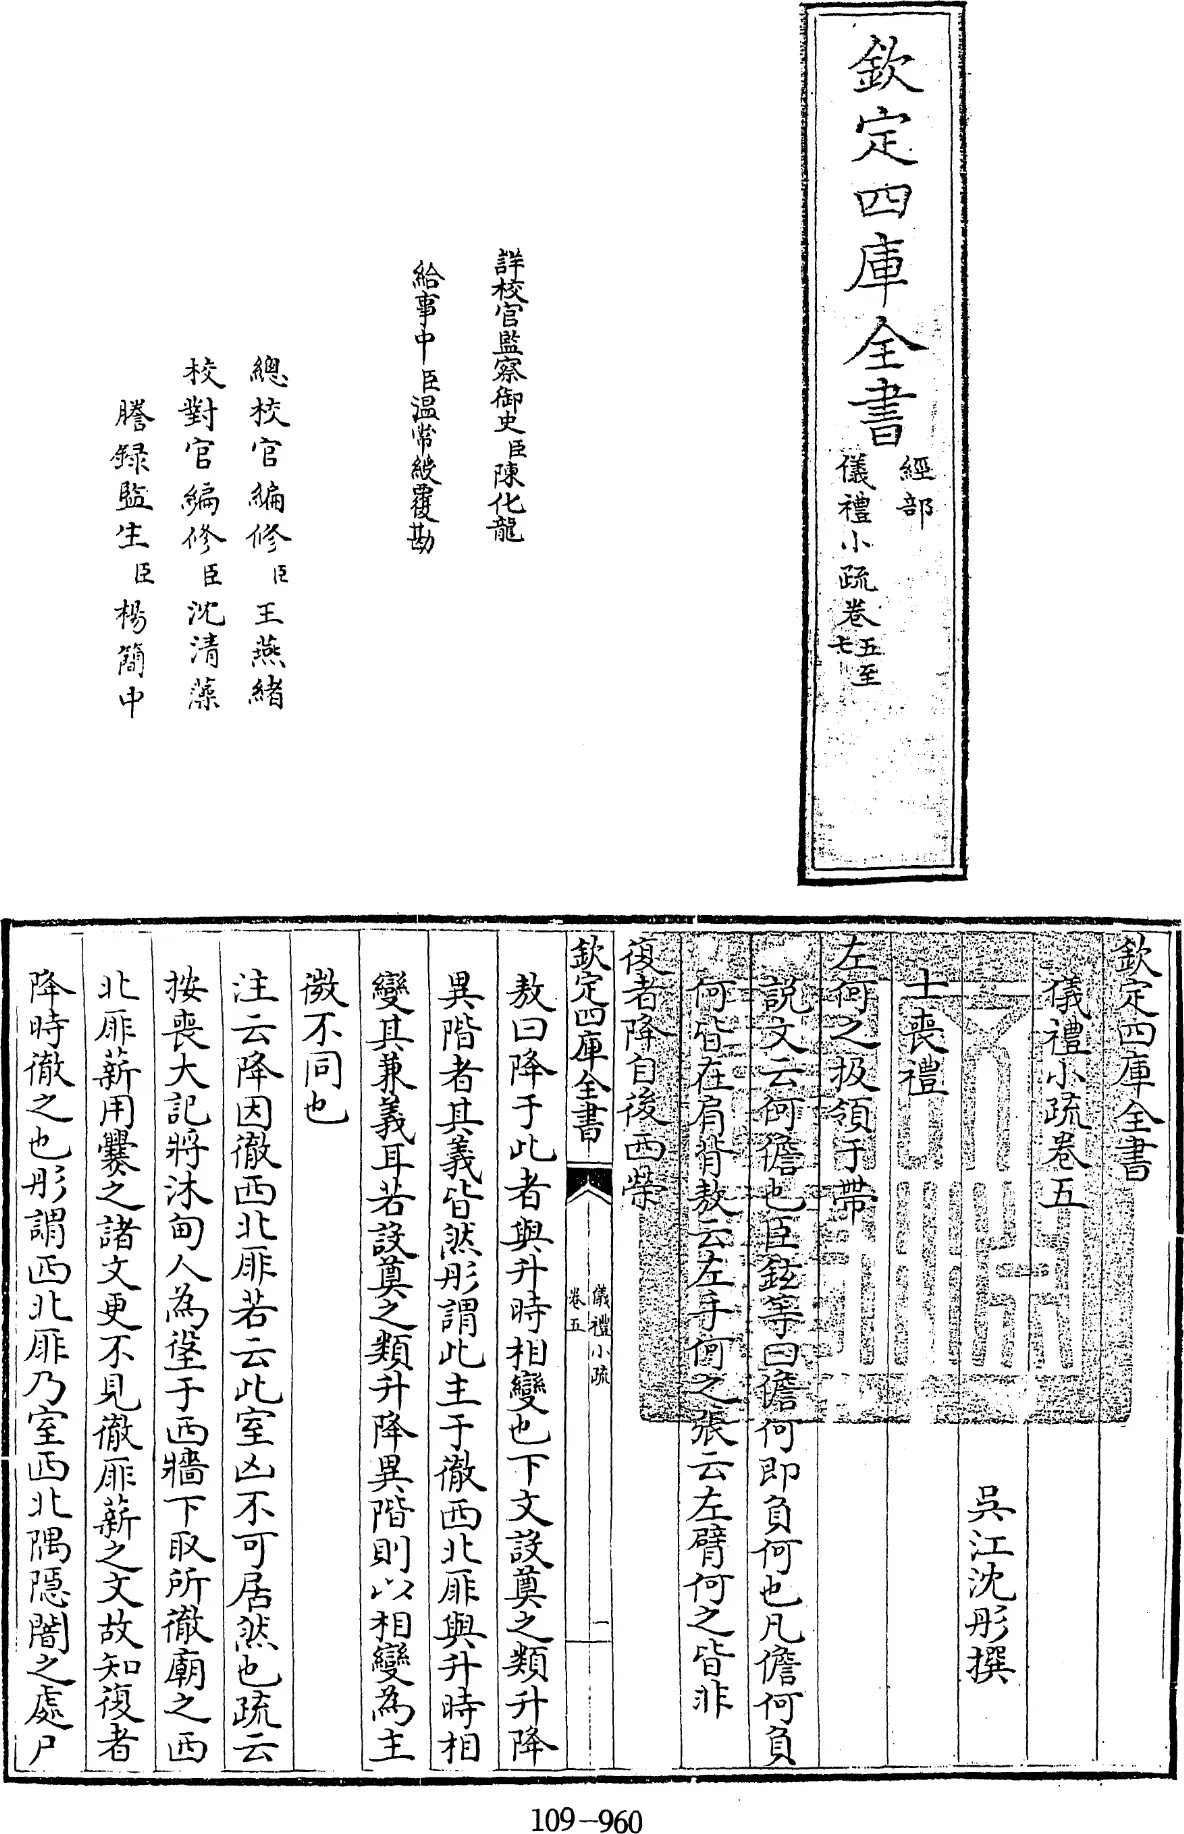 欽定四庫全書
經部
儀禮小疏卷五至
七
詳校官監察御史臣陳化龍
給事中臣溫常綬覆勘
總校官編修臣王燕緒
校對官編修臣沈清藻
謄録監生臣楊簡中
欽定四庫全書
儀禮小疏卷五
吳江沈彤撰
士喪禮
左何之扱領于帶
說文云何儋也臣鉉等曰儋何即負何也凡儋何負
何皆在肩背敖云左手何之張云左臂何之皆非
復者降自後西榮
欽定四庫全書
儀禮小疏
卷五
一
敖曰降于此者與升時相變也下文設奠之類升降
異階者其義皆然彤謂此主于徹西北厞與升時相
變其兼義耳若設奠之類升降異階則以相變為主
微不同也
注云降因徹西北厞若云此室凶不可居然也疏云
按喪大記將沐甸人為垼于西牆下取所徹廟之西
北厞薪用爨之諸文更不見徹厞薪之文故知復者
降時徹之也彤謂西北厞乃室西北隅隱闇之處尸
109-960